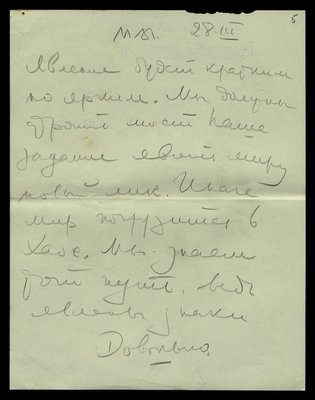 5
МЫ. 28.III
Явление будет кратким
но ярким. Мы должны
строить мост. Наше
задание явить миру
новый лик. Иначе
мир погрузится в
Хаос. Мы знаем
этот путь, ведь
явлены знаки
Довольно.